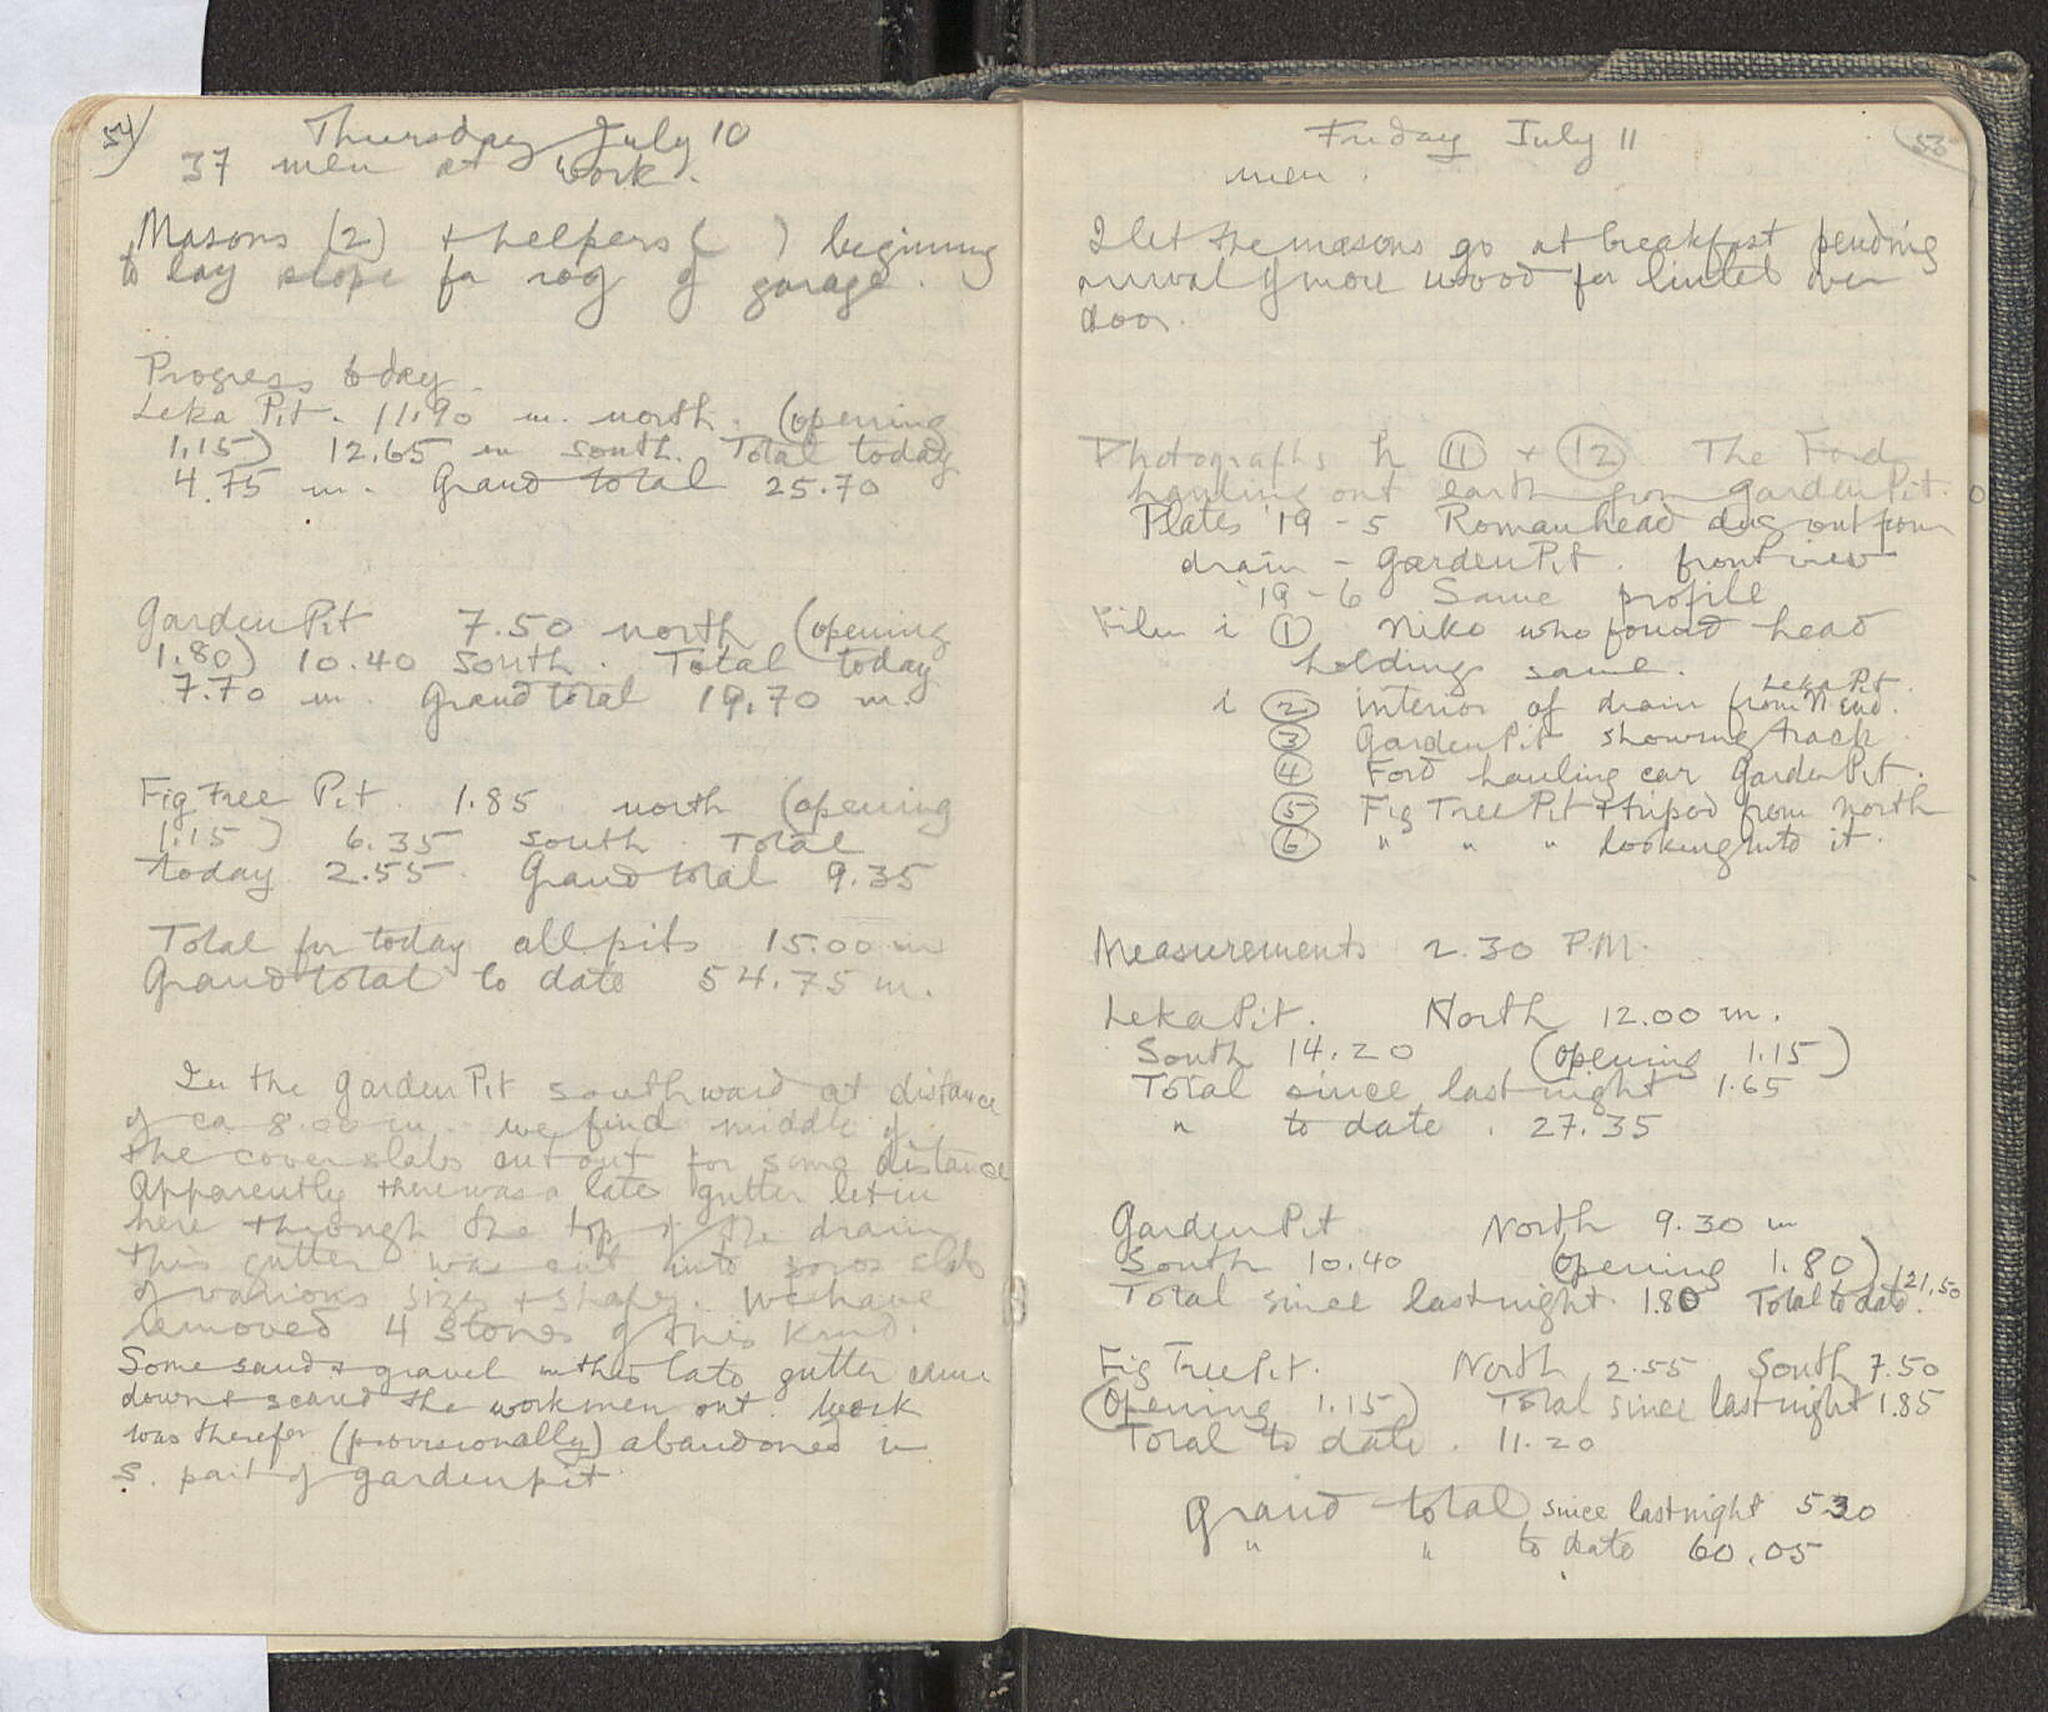 54
Thursday July 10
37 men at work.
Masons (2) + helpers ( ) beginning
to lay slope for roof of garage.
Progress today.
Leka Pit. 11.90 m. north. (opening
1.15) 12.65 m south. Total today
4.75 m. Grand total 25.70
Garden Pit 7.50 north (opening
1.80) 10.40 south. Total today
7.70 m. Grand total 19.70 m.
Fig Tree Pit. 1.85 north (opening
1.15) 6.35 south. Total
today 2.55. Grand total 9.35
Total for today all pits 15.00 m
Grand total to date 54.75 m.
In the Garden Pit southward at distance
of ca 8.00 m. we find middle of
the cover slabs cut out for some distance
Apparently there was a late gutter let in
here through the top of the drain
This gutter was cut into poros slabs
of various sizes + shapes. We have
removed 4 stones of this kind.
Some sand + gravel in this late gutter came
down + scared the workmen out. Work
was therefor (provisionally) abandoned in
S. part of garden pit.
Friday July 11
53
men.
I let the masons go at breakfast pending
arrival of more wood for lintel over
door.
Photographs h 11 + 12 The Ford
hauling out earth from Garden Pit.
Plates 19 - 5 Roman head dug out from
drain - Garden Pit. front view
19 - 6 Same profile
Film i 1 Niko who found head
holding same.
Leka Pit.
i 2 interior of drain from N. End.
3 Garden Pit showing track
4 Ford hauling car Garden Pit.
5 Fig Tree Pit + tripod from north
6 " " " looking into it.
Measurements 2.30 P.M.
Leka Pit. North 12.00 m.
South 14.20 (opening 1.15)
Total since last night 1.65
" to date . 27.35
Garden Pit North 9.30 m
South 10.40 (opening 1.80)
Total since last night. 1.80 Total to date. 21.50
Fig Tree Pit. North 2.55 South 7.50
(Opening 1.15) Total since last night 1.85
Total to date. 11.20
Grand total since last night 530
" " to date 60.05